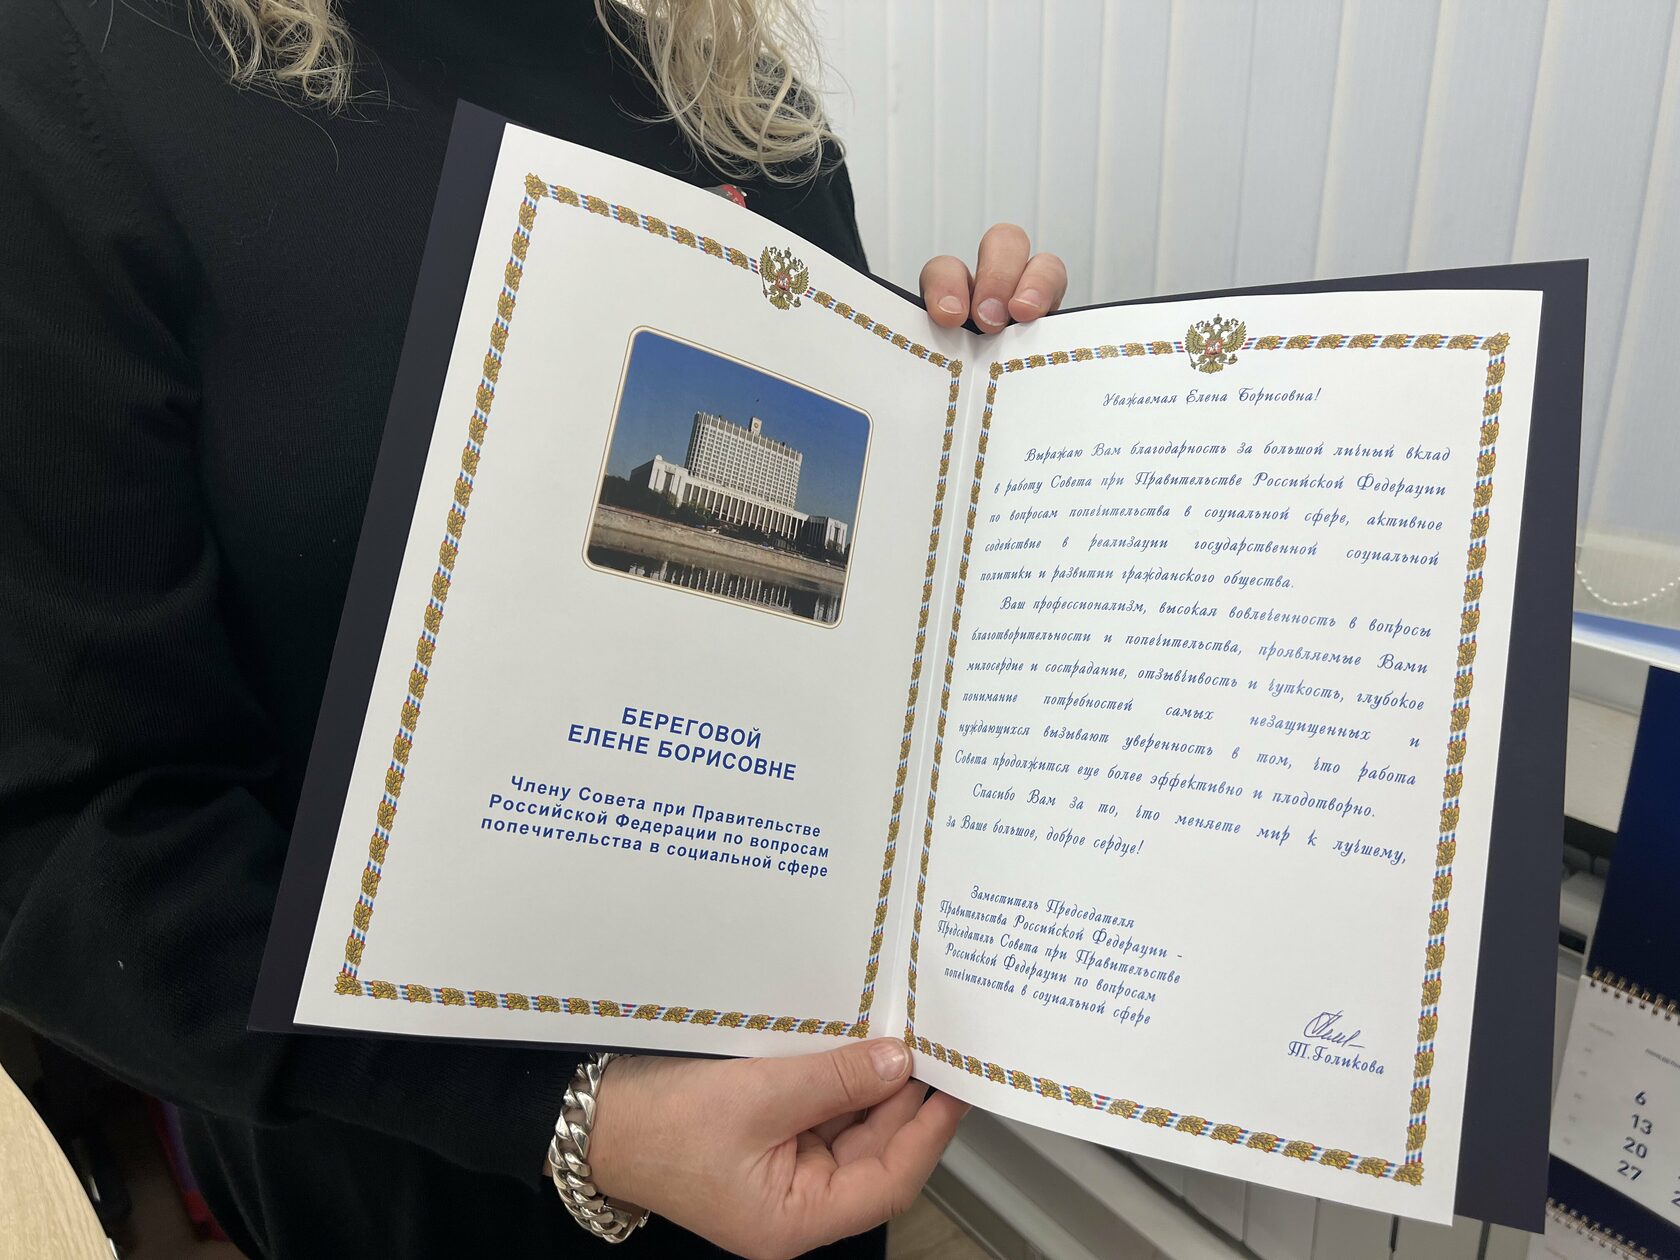 БЕРЕГОВОЙ
ЕЛЕНЕ БОРИСОВНЕ
Члену Совета при Правительстве
Российской Федерации по вопросам
попечительства в социальной сфере
Уважаемая Елена Борисовна!
Выражаю Вам благодарность за большой личный вклад
в работу Совета при Правительстве Российской Федерации
по вопросам попечительства в социальной сфере, активное
содействие в реализации государственной социальной
политики и развитии гражданского общества.
Ваш профессионализм, высокая вовлеченность в вопросы
благотворительности и попечительства, проявляемые Вами
милосердие и сострадание, отзывчивость и чуткость, глубокое
понимание потребностей самых незащищенных и
нуждающихся вызывают уверенность в том, что работа
Совета продолжится еще более эффективно и плодотворно.
Спасибо Вам за то, что меняете мир к лучшему,
за Ваше большое, доброе сердце!
Заместитель Председателя
Правительства Российской Федерации -
Председатель Совета при Правительстве
Российской Федерации по вопросам
попечительства в социальной сфере
Т.Голикова
6
13
20
27